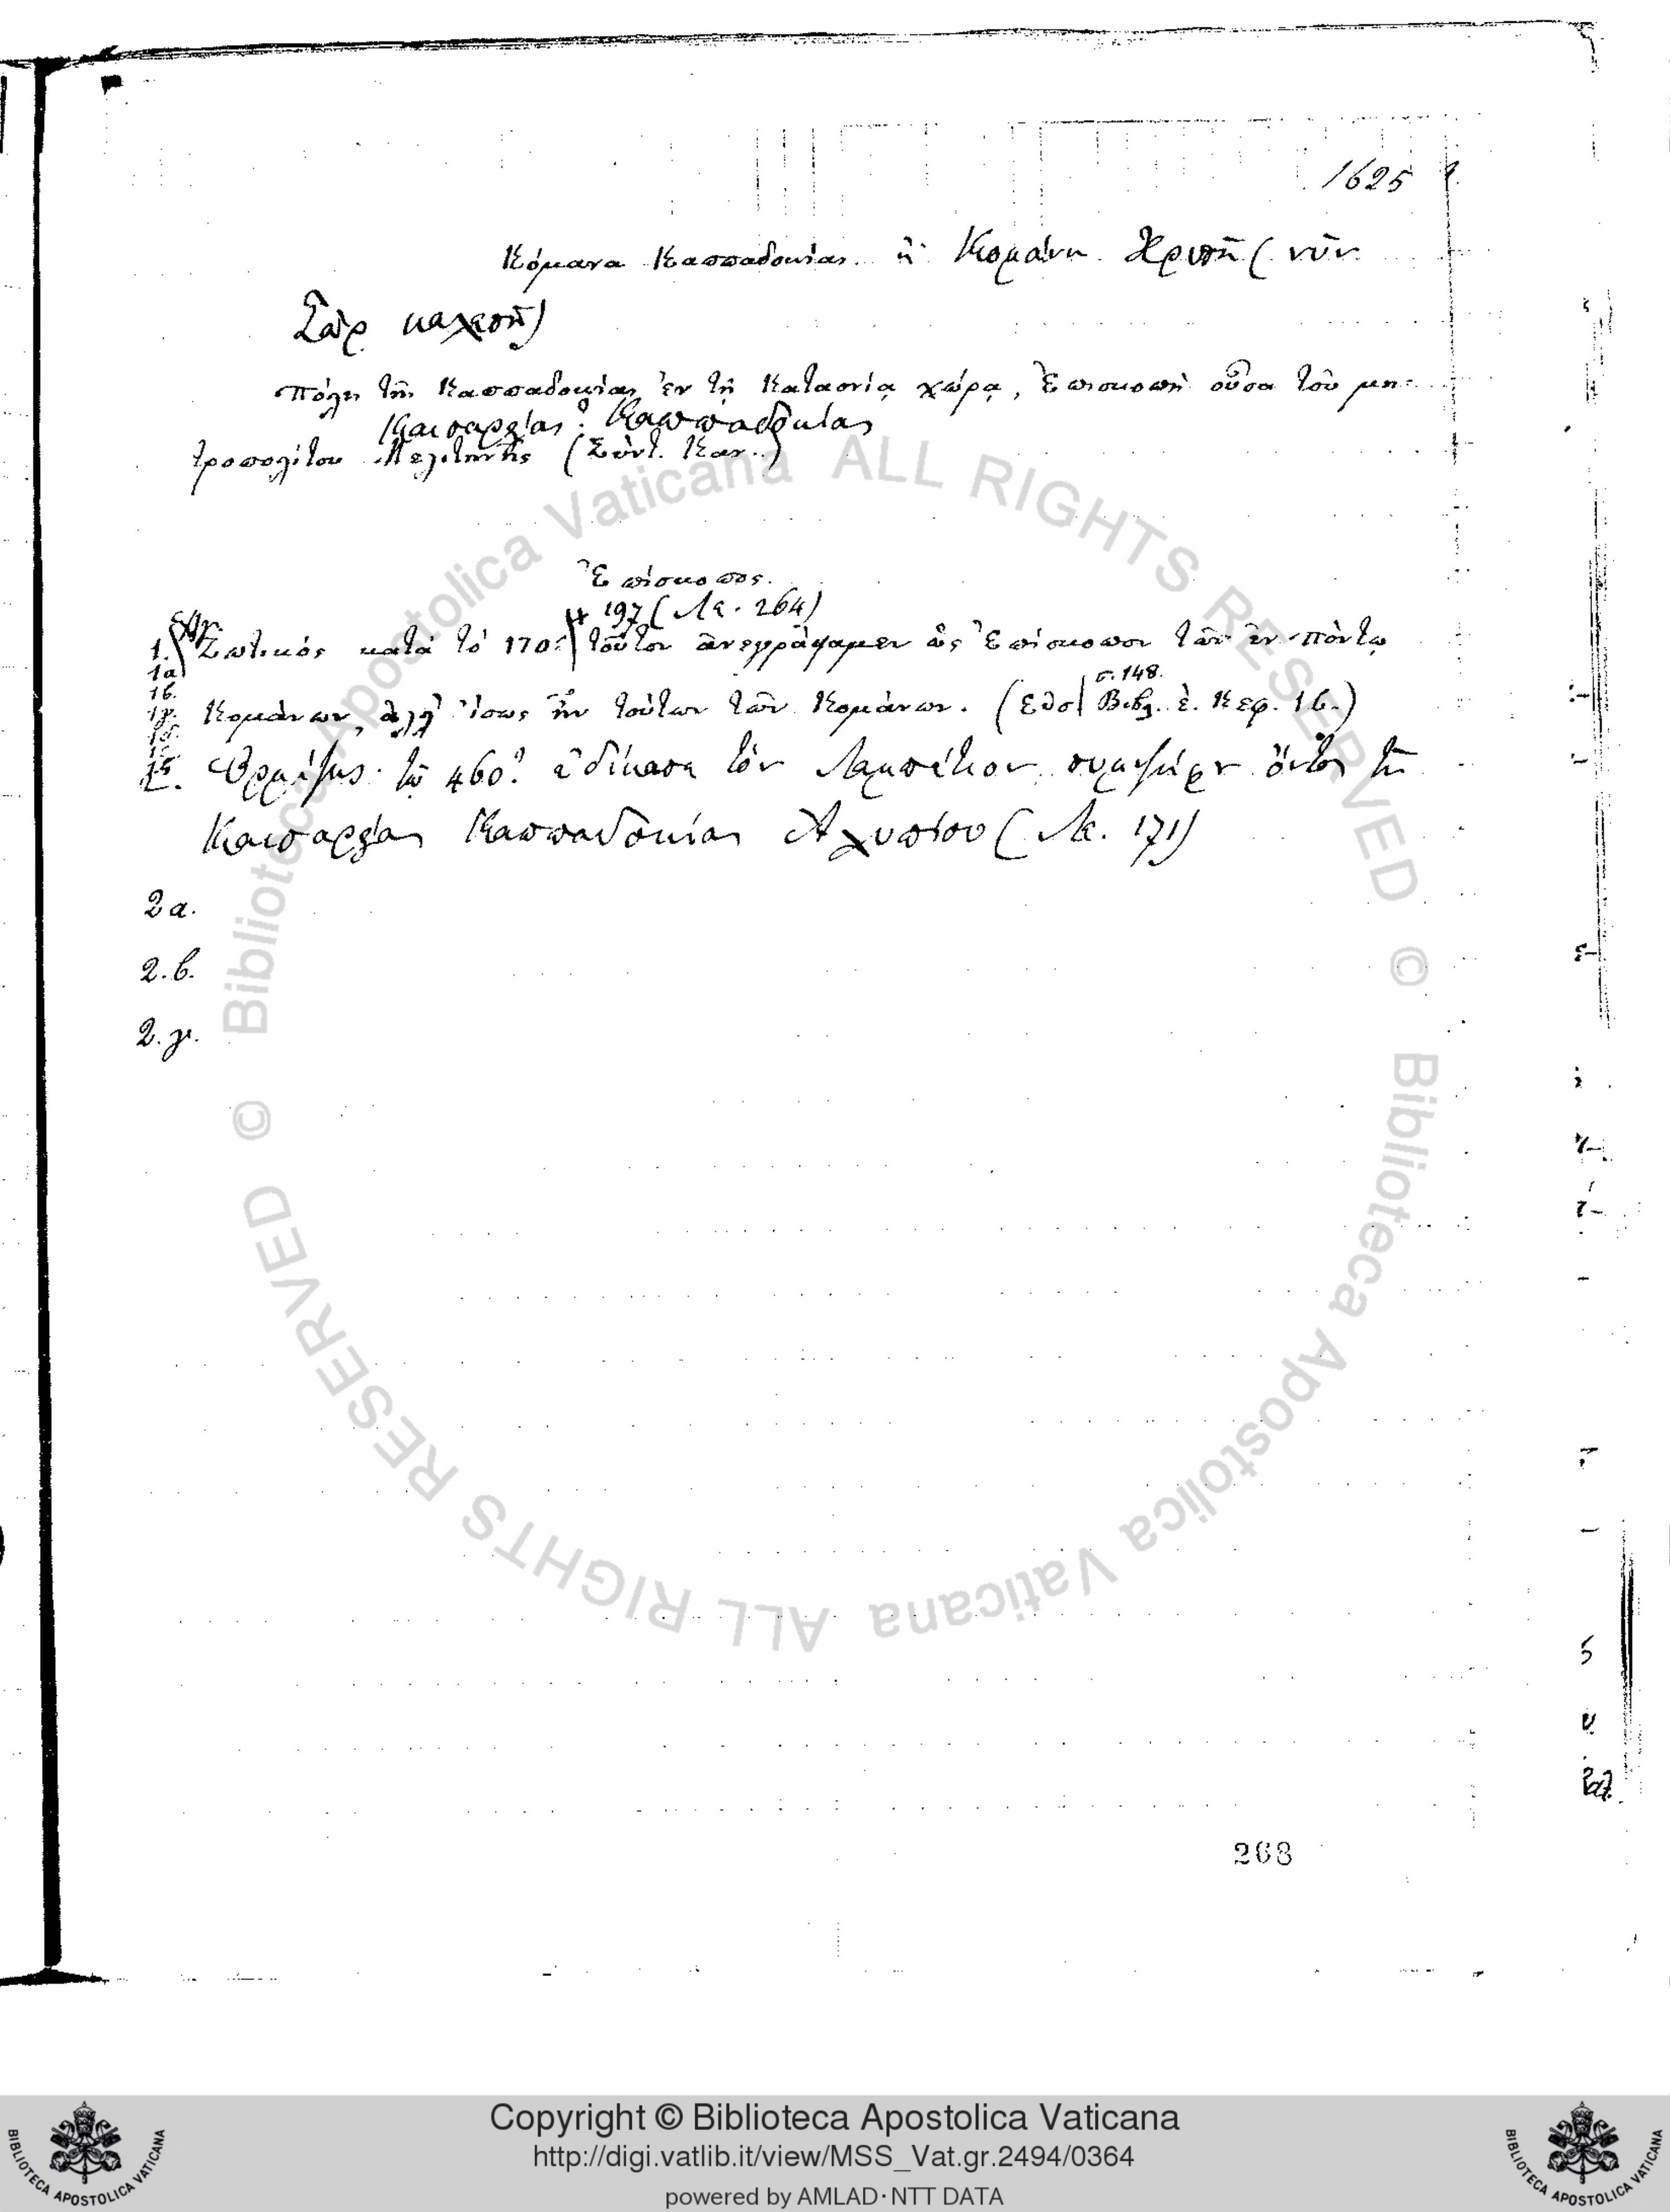 1625
Κόμανα Καππαδοκίας ἢ Κομάνη Χρυσῆ (νῦν
Σὰρ καλεσὴ)
Πόλις τῆς Καππαδοκίας ἐν τῇ Καταονίᾳ χώρᾳ, Ἐπισκοπὴ οὖσα τοῦ μη-
Καισαρείας Καππαδοκίας
τροπολίτου Μελιτηνῆς (Σύντ. Καν.)
Ἐπίσκοπος.
197 (Λε. 264)
1. Ζωτικός κατὰ τὸ 170: τοῦτον ἀνεγράψαμεν ὡς Ἐπίσκοπον τῶν ἐν Πόντῳ
1α
σ. 148.
1β.
1γ. Κομάνων, ἀλλ' ἴσως ἦν τούτων τῶν Κομάνων. (Εὐσ. Βιβλ. ἐ. Κεφ. 16.)
τῷ 460: ἐδίκασε τὸν Λαμπέτιον ὄντος τῆς
Καισαρείας Καππαδοκίας Ἀλυπίου (Λε. 171)
2α.
2.β.
2.γ.
268
Copyright © Biblioteca Apostolica Vaticana
http://digi.vatlib.it/view/MSS_Vat.gr.2494/0364
powered by AMLAD·NTT DATA
BIBLIOTECA APOSTOLICA VATICANA
BIBLIOTECA APOSTOLICA VATICANA
© Biblioteca Apostolica Vaticana ALL RIGHTS RESERVED
© Biblioteca Apostolica Vaticana ALL RIGHTS RESERVED